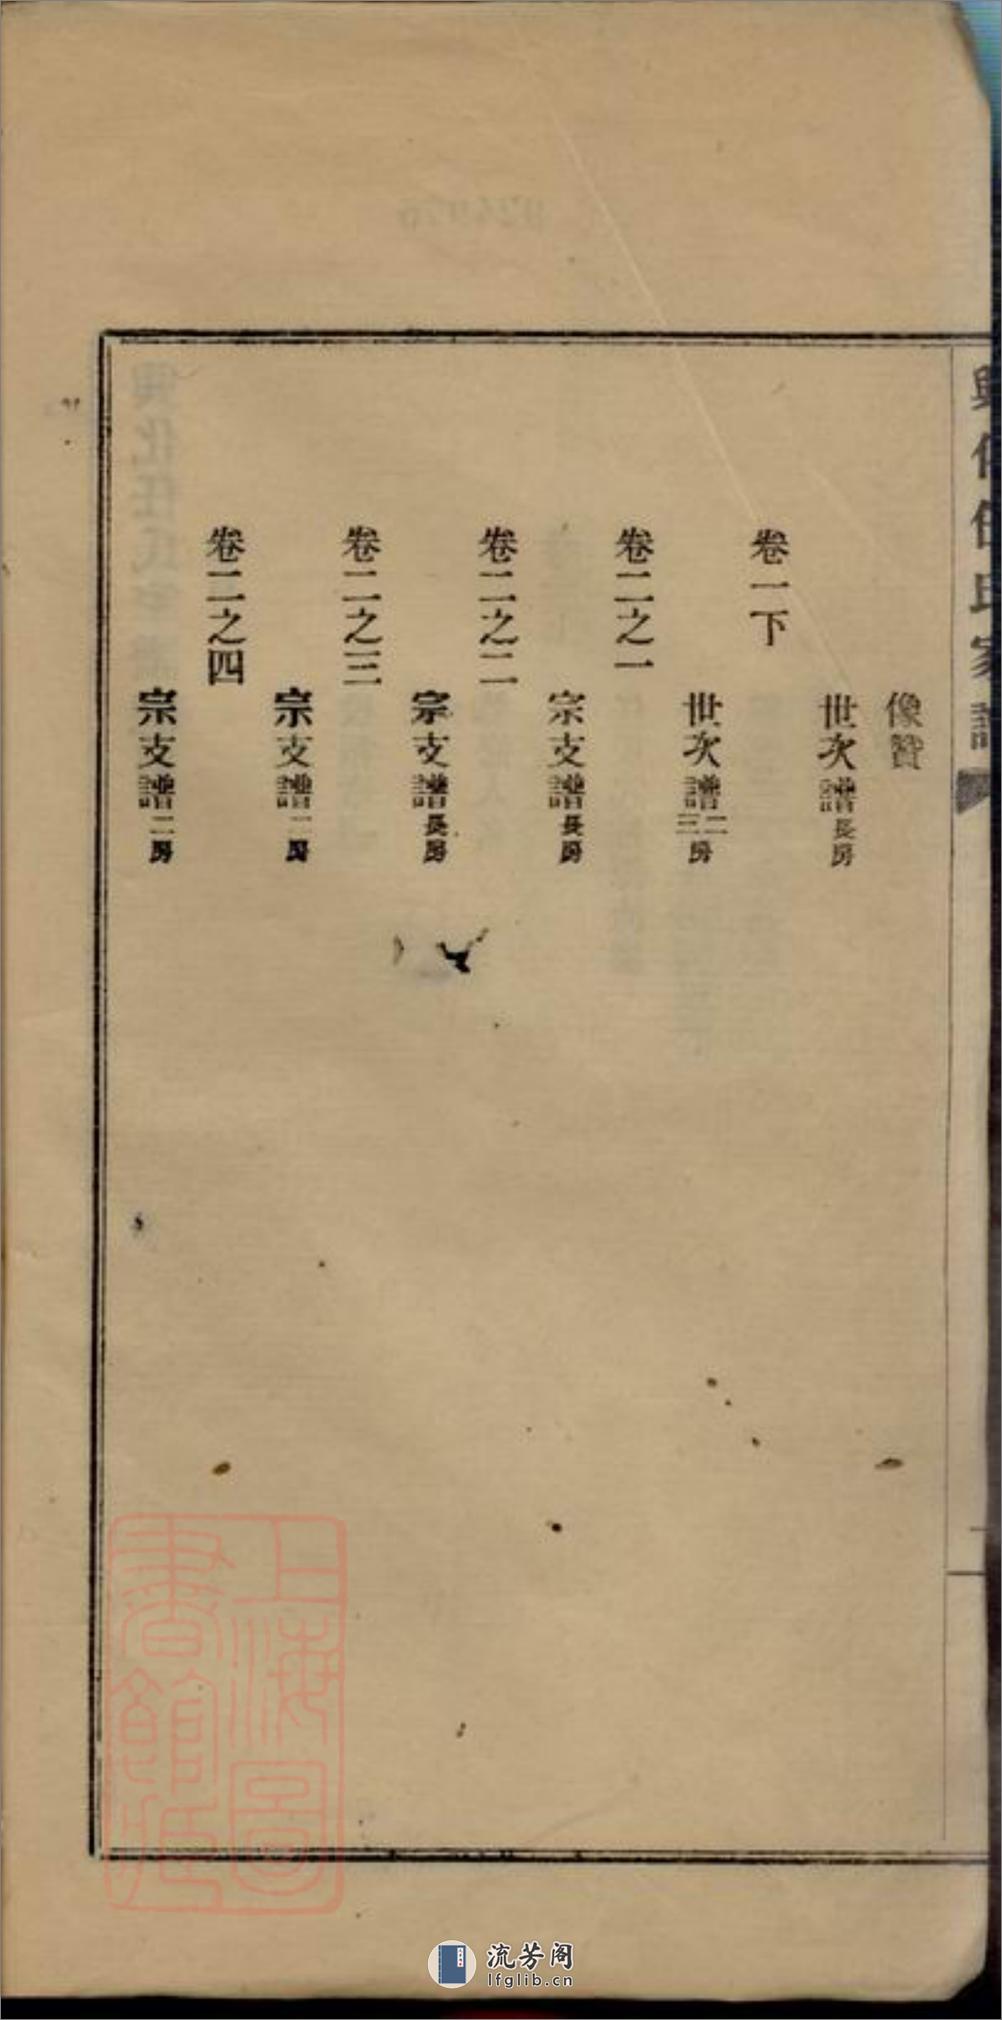 像贊
世次譜長房
卷一下
世次譜二三房
卷二之一
宗支譜長房
卷二之二
宗支譜長房
卷二之三
宗支譜二房
卷二之四
宗支譜二房
上海圖書館藏
流芳阁
lfglib.cn